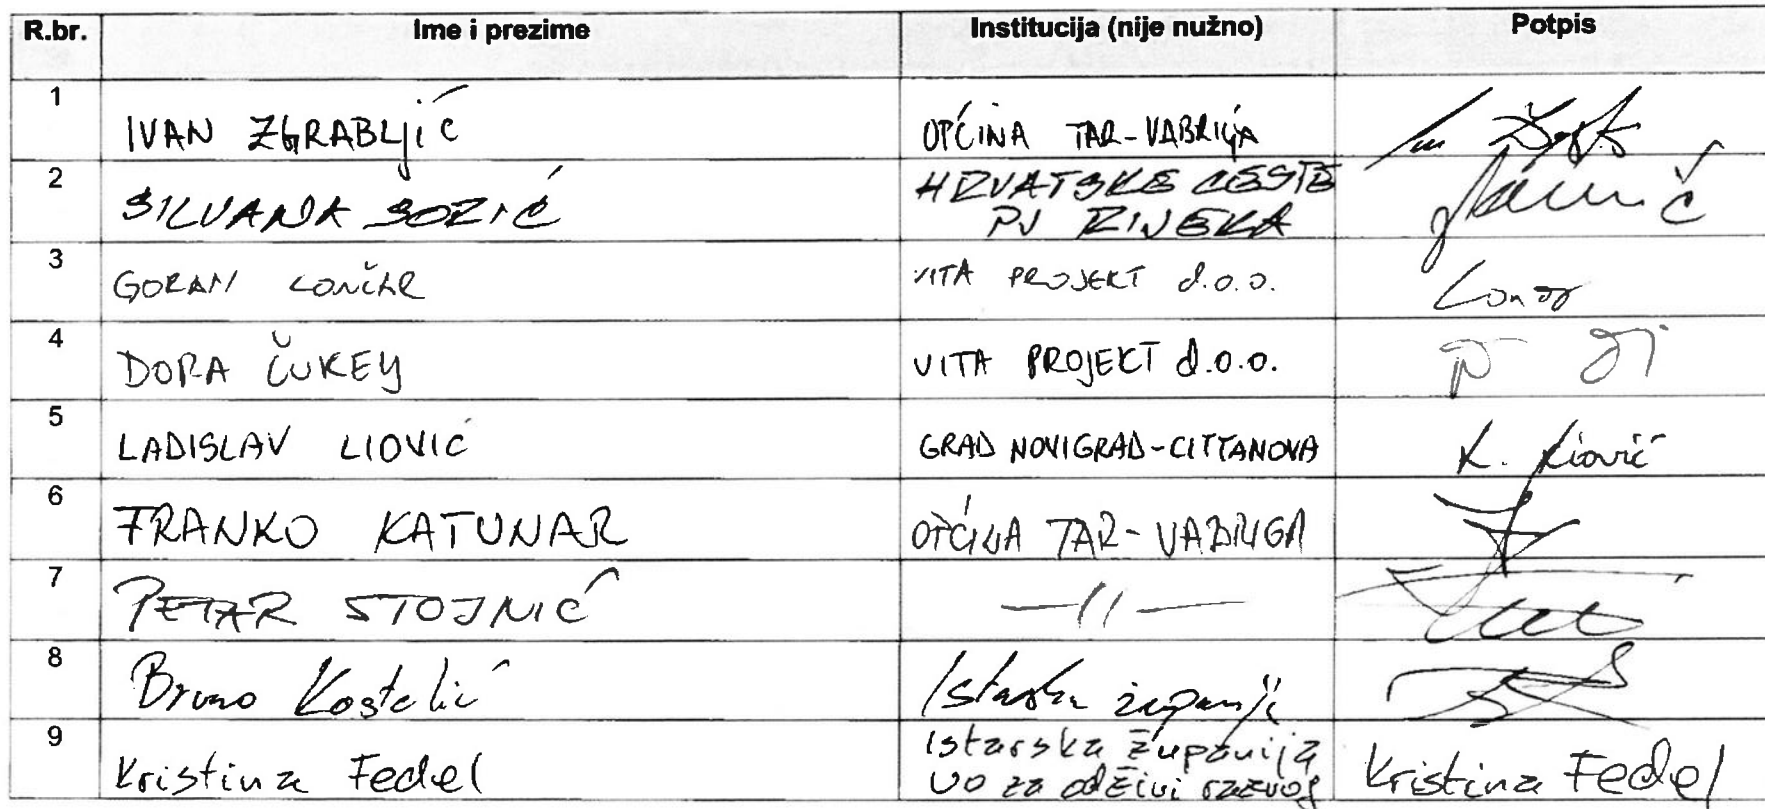 R.br. Ime i prezime Institucija (nije nužno) Potpis
1 IVAN ZGRABLJIĆ OPĆINA TAR-VABRIGA
2 SILVANA SORIĆ HRVATSKE CESTE
PJ RIJEKA
3 GORAN LONČAR VITA PROJEKT d.o.o.
4 DORA ČUKEY VITA PROJEKT d.o.o.
5 LADISLAV LIOVIĆ GRAD NOVIGRAD-CITTANOVA K. Liović
6 FRANKO KATUNAR OPĆINA TAR-VABRIGA
7 PETAR STOJNIĆ —//—
8 Bruno Kostelić Istarska županija
9 Kristina Fedel Istarska županija Kristina Fedel
UO za održivi razvoj